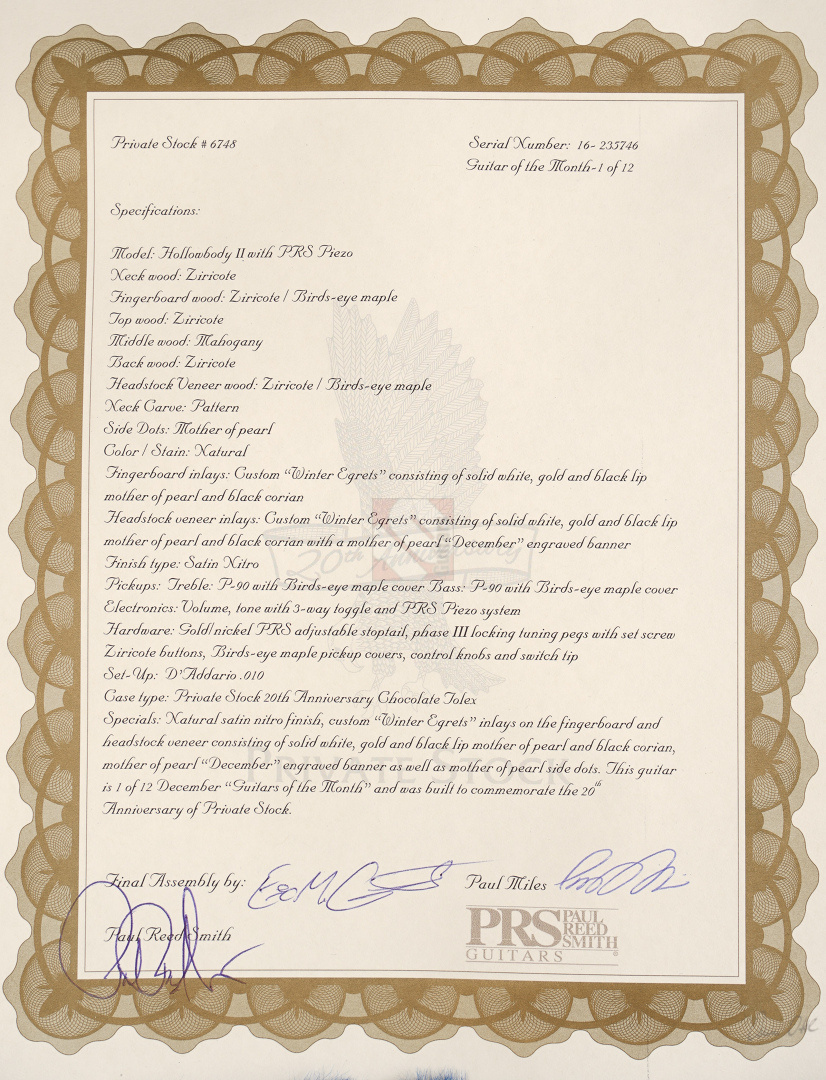 Private Stock # 6748
Serial Number: 16- 235746
Guitar of the Month-1 of 12
Specifications:
Model: Hollowbody II with PRS Piezo
Neck wood: Ziricote
Fingerboard wood: Ziricote / Birds-eye maple
Top wood: Ziricote
Middle wood: Mahogany
Back wood: Ziricote
Headstock Veneer wood: Ziricote / Birds-eye maple
Neck Carve: Pattern
Side Dots: Mother of pearl
Color / Stain: Natural
Fingerboard inlays: Custom “Winter Egrets” consisting of solid white, gold and black lip
mother of pearl and black corian
Headstock veneer inlays: Custom “Winter Egrets” consisting of solid white, gold and black lip
mother of pearl and black corian with a mother of pearl “December” engraved banner
20th Anniversary
Finish type: Satin Nitro
Pickups: Treble: P-90 with Birds-eye maple cover Bass: P-90 with Birds-eye maple cover
Electronics: Volume, tone with 3-way toggle and PRS Piezo system
Hardware: Gold/nickel PRS adjustable stoptail, phase III locking tuning pegs with set screw
Ziricote buttons, Birds-eye maple pickup covers, control knobs and switch tip
Set-Up: D'Addario .010
Case type: Private Stock 20th Anniversary Chocolate Tolex
Specials: Natural satin nitro finish, custom “Winter Egrets” inlays on the fingerboard and
headstock veneer consisting of solid white, gold and black lip mother of pearl and black corian,
mother of pearl “December” engraved banner as well as mother of pearl side dots. This guitar
PRIVATE STOCK
is 1 of 12 December “Guitars of the Month” and was built to commemorate the 20th
Anniversary of Private Stock.
Final Assembly by:
Paul Miles
Paul Reed Smith
PRS PAUL REED SMITH
GUITARS